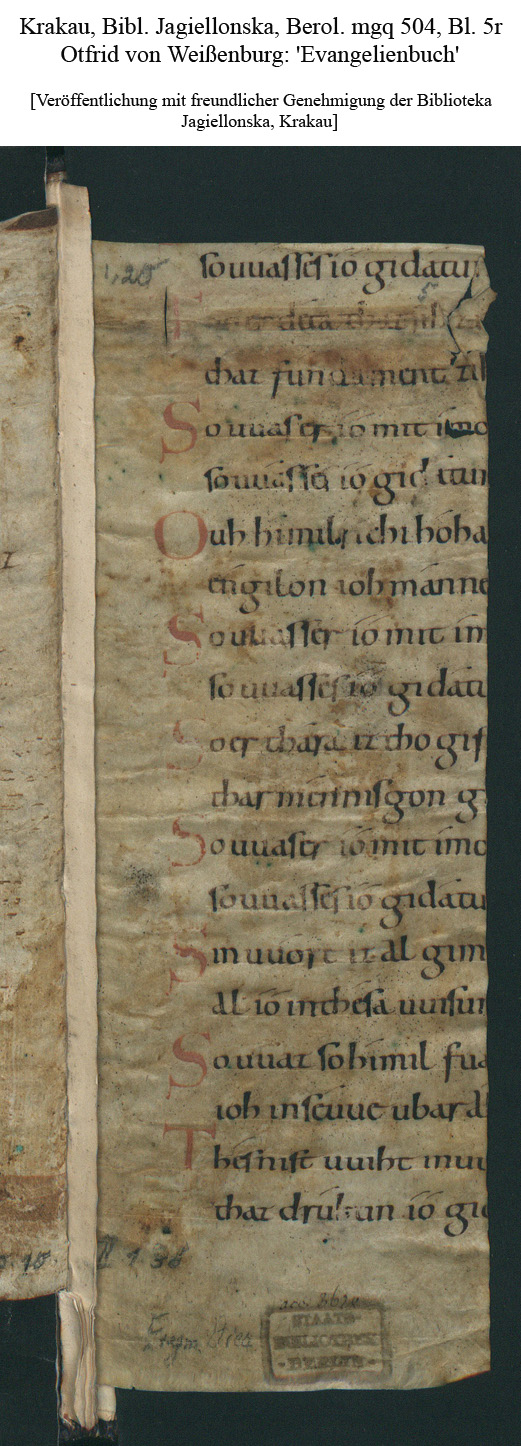 Krakau, Bibl. Jagiellonska, Berol. mgq 504, Bl. 5r
Otfrid von Weißenburg: 'Evangelienbuch'
[Veröffentlichung mit freundlicher Genehmigung der Biblioteka
Jagiellonska, Krakau]
souuasses io gidatun
5
thaz fundament zi
So uuas er io mit imo
so uuasser io gid atun
Ouh himilrichi hoha
engilon ioh manno
So uuasser io mit im
so uuasses io gidatu
So er thara iz tho gif
thar mennisgon g
So uuaser io mit imo
so uuasses io gidatu
Sin uuort iz al gim
al io in thesa uuisun
So uuaz so himil fua
ioh in seuue ubar al
Thes nist uuiht in uu
thaz druhtin io gid
II 1 38
acc. 
STAATS-
BIBLIOTHEK
- BERLIN -